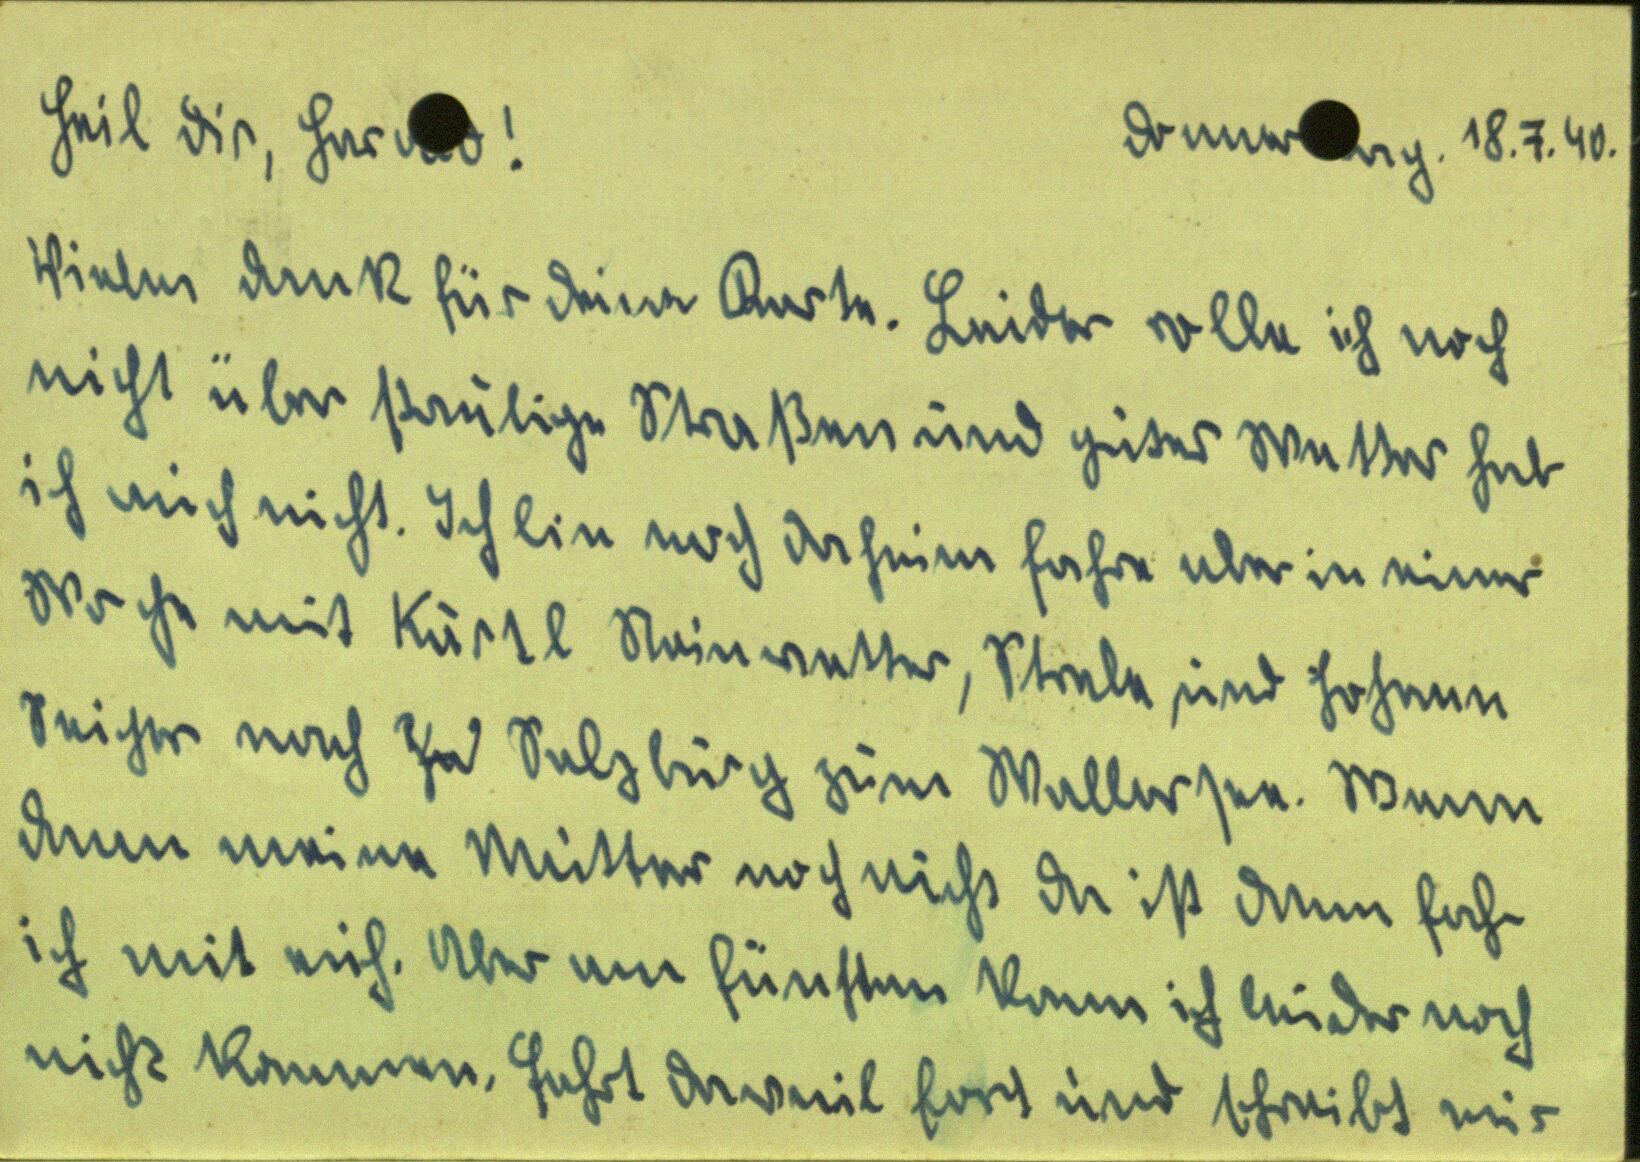 Heil dir, Harald! Donnerstag. 18.7.40.
Vielen dank für deine Karte. Leider rolle ich noch
nicht über staubige Straßen und gutes Wetter hab
ich auch nicht. Ich bin noch daheim fahre aber in einer
Woche mit Kurtl Neinwetter, Strale und Johann
Seicher nach Salzburg zum Wallersee. Wenn
dann meine Mutter noch nicht da ist dann fahr
ich mit euch. Aber am fünften kann ich leider noch
nicht kommen. Fahrt derweil fort und schreibt mir